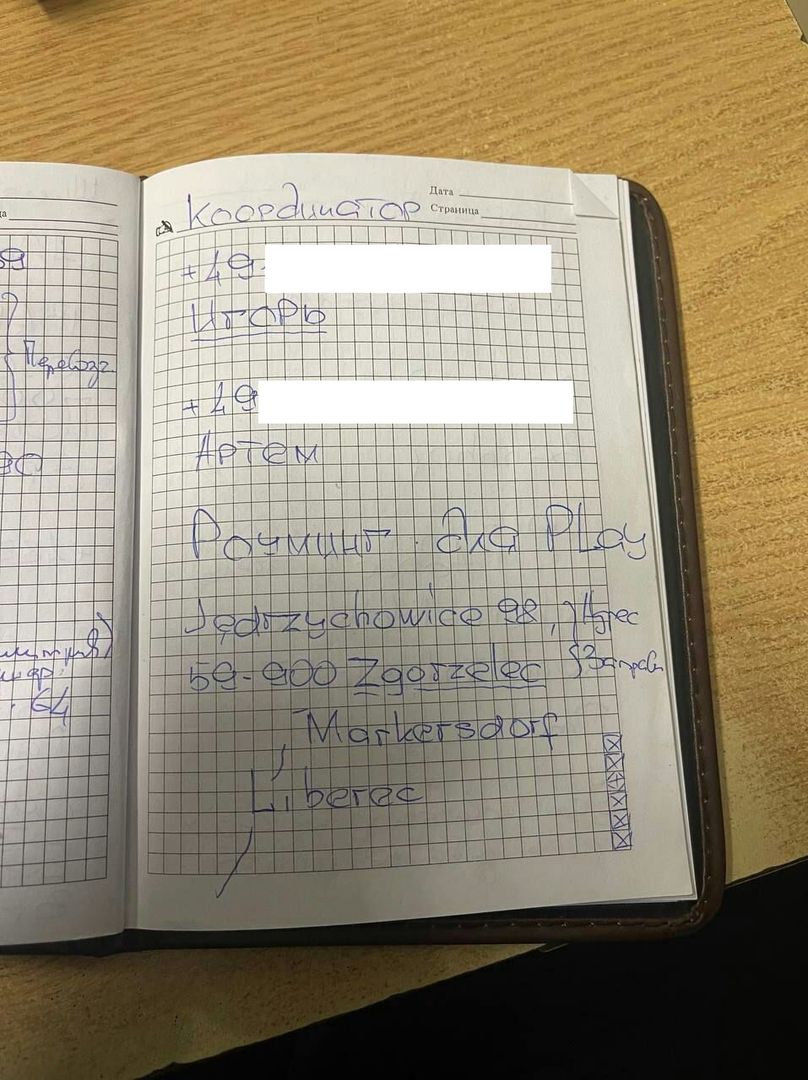 Дата
Страница
Координатор
+49
Игорь
+49
Артем
Роуминг для PLay
Jędrzychowice 98, } Адрес
59-900 Zgorzelec } Заправки
Markersdorf
Liberec
Перевозч
64